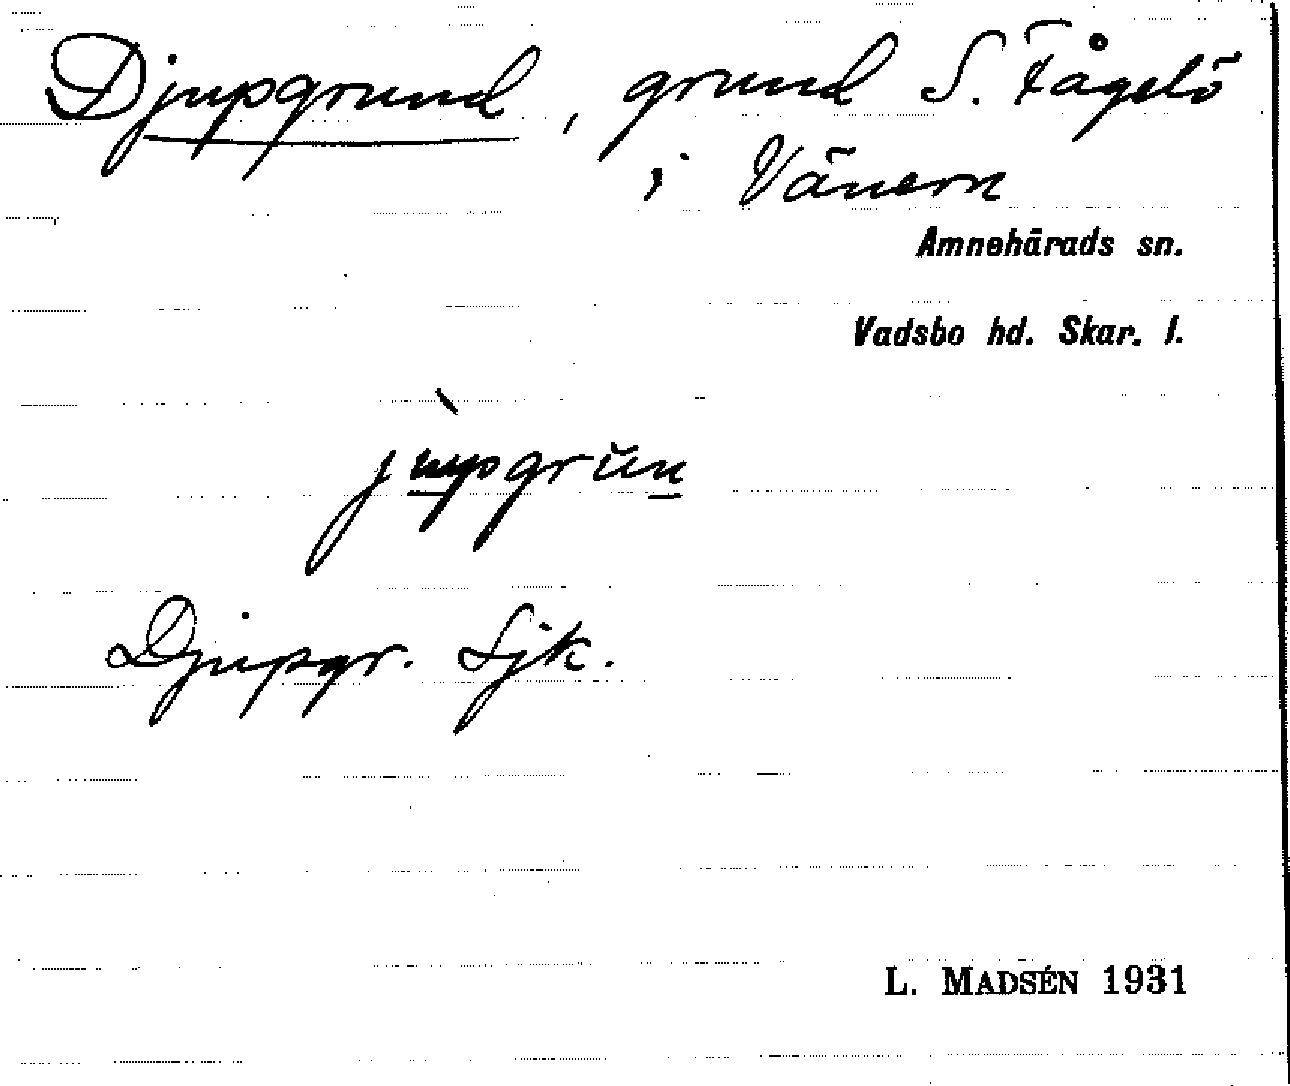 Djupgrund, grund S. Fågelö
i Vänern
Amnehärads sn.
Vadsbo hd. Skar. l.
j̀upgrŭn
Djupgr. Sjk.
L. MADSÉN 1931